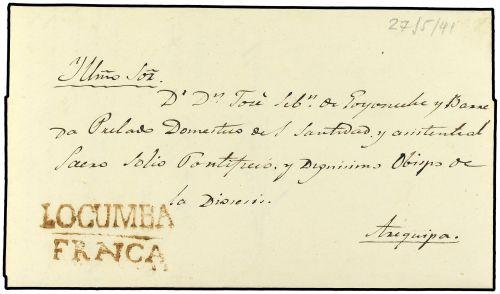 27/5/41
Yllmo Sor.
Dr. Dn. José Sebn. de Goyoneche y Barre
da Prelado Domestico de S Santidad, y asistente al
Sacro Solio Pontificio, y Dignisimo Obispo de
la Diocesis.
Arequipa.
LOCUMBA
FRANCA